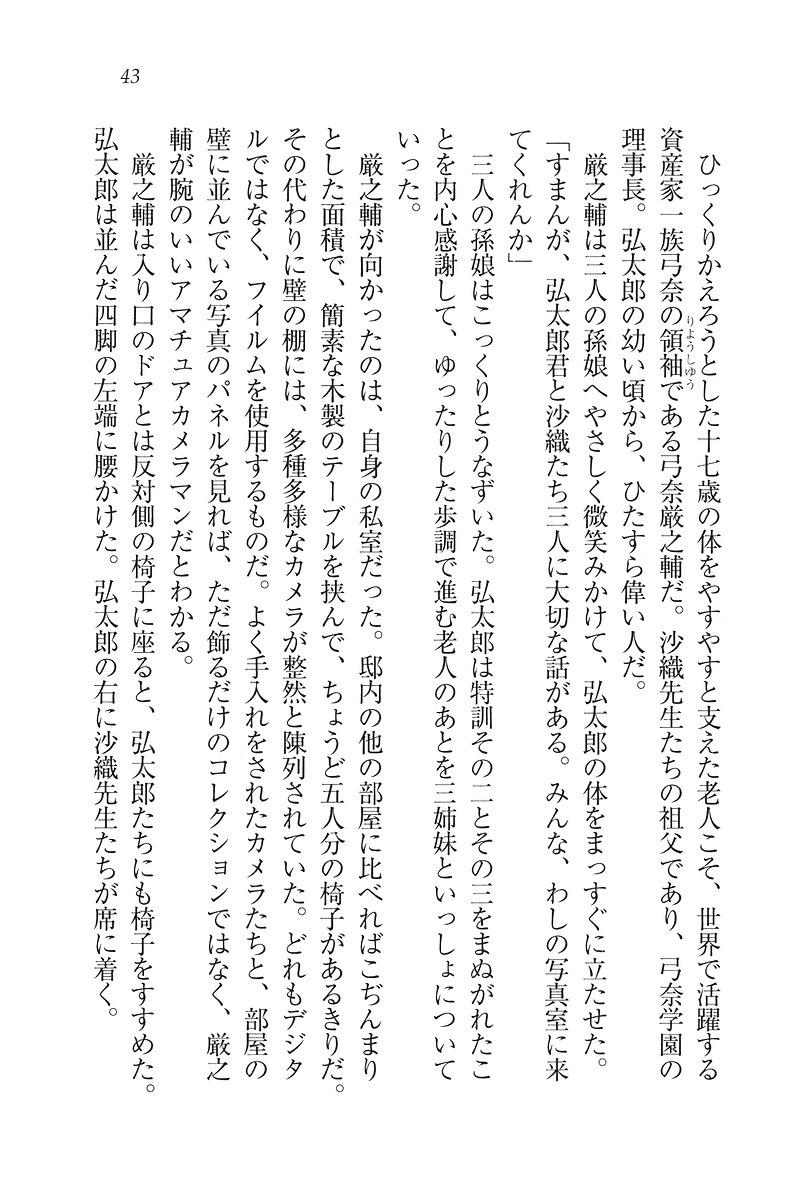 43
ひっくりかえろうとした十七歳の体をやすやすと支えた老人こそ、世界で活躍する
資産家一族弓奈の領袖である弓奈厳之輔だ。沙織先生たちの祖父であり、弓奈学園の
りようしゆう
理事長。弘太郎の幼い頃から、ひたすら偉い人だ。
厳之輔は三人の孫娘へやさしく微笑みかけて、弘太郎の体をまっすぐに立たせた。
「すまんが、弘太郎君と沙織たち三人に大切な話がある。みんな、わしの写真室に来
てくれんか」
三人の孫娘はこっくりとうなずいた。弘太郎は特訓その二とその三をまぬがれたこ
とを内心感謝して、ゆったりした歩調で進む老人のあとを三姉妹といっしょについて
いった。
厳之輔が向かったのは、自身の私室だった。邸内の他の部屋に比べればこぢんまり
とした面積で、簡素な木製のテーブルを挟んで、ちょうど五人分の椅子があるきりだ。
その代わりに壁の棚には、多種多様なカメラが整然と陳列されていた。どれもデジタ
ルではなく、フイルムを使用するものだ。よく手入れをされたカメラたちと、部屋の
壁に並んでいる写真のパネルを見れば、ただ飾るだけのコレクションではなく、厳之
輔が腕のいいアマチュアカメラマンだとわかる。
厳之輔は入り口のドアとは反対側の椅子に座ると、弘太郎たちにも椅子をすすめた。
弘太郎は並んだ四脚の左端に腰かけた。弘太郎の右に沙織先生たちが席に着く。